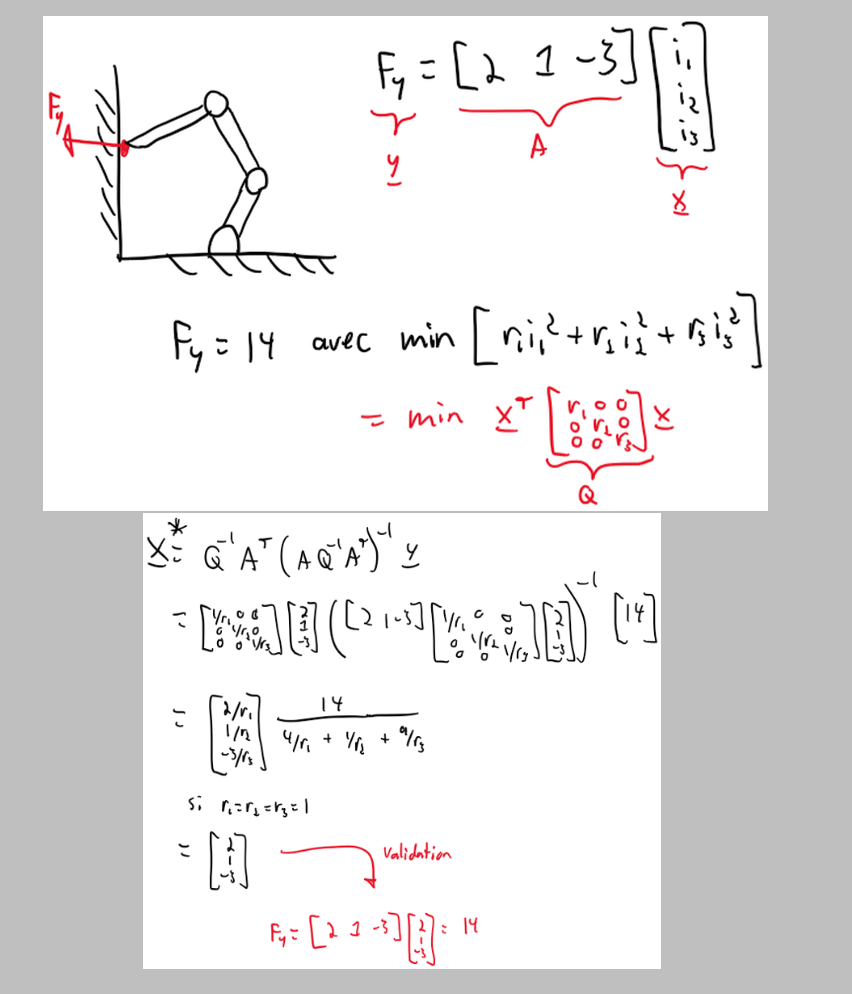 F_y
F_y = [2 1 -3] [i_1 i_2 i_3]
y A x
F_y = 14 avec min [r_1 i_1^2 + r_2 i_2^2 + r_3 i_3^2]
= min x^T [r_1 0 0 0 r_2 0 0 0 r_3] x
Q
x^* = Q^-1 A^T (A Q^-1 A^T)^-1 y
= [1/r_1 0 0 0 1/r_2 0 0 0 1/r_3] [2 1 -3] ([2 1 -3] [1/r_1 0 0 0 1/r_2 0 0 0 1/r_3] [2 1 -3])^-1 [14]
= [2/r_1 1/r_2 -3/r_3] 14 / (4/r_1 + 1/r_2 + 9/r_3)
si r_1 = r_2 = r_3 = 1
= [2 1 -3]
validation
F_y = [2 1 -3] [2 1 -3] = 14